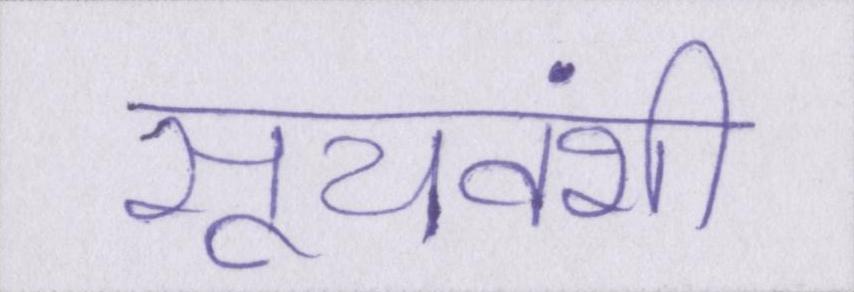 सूयवंशी